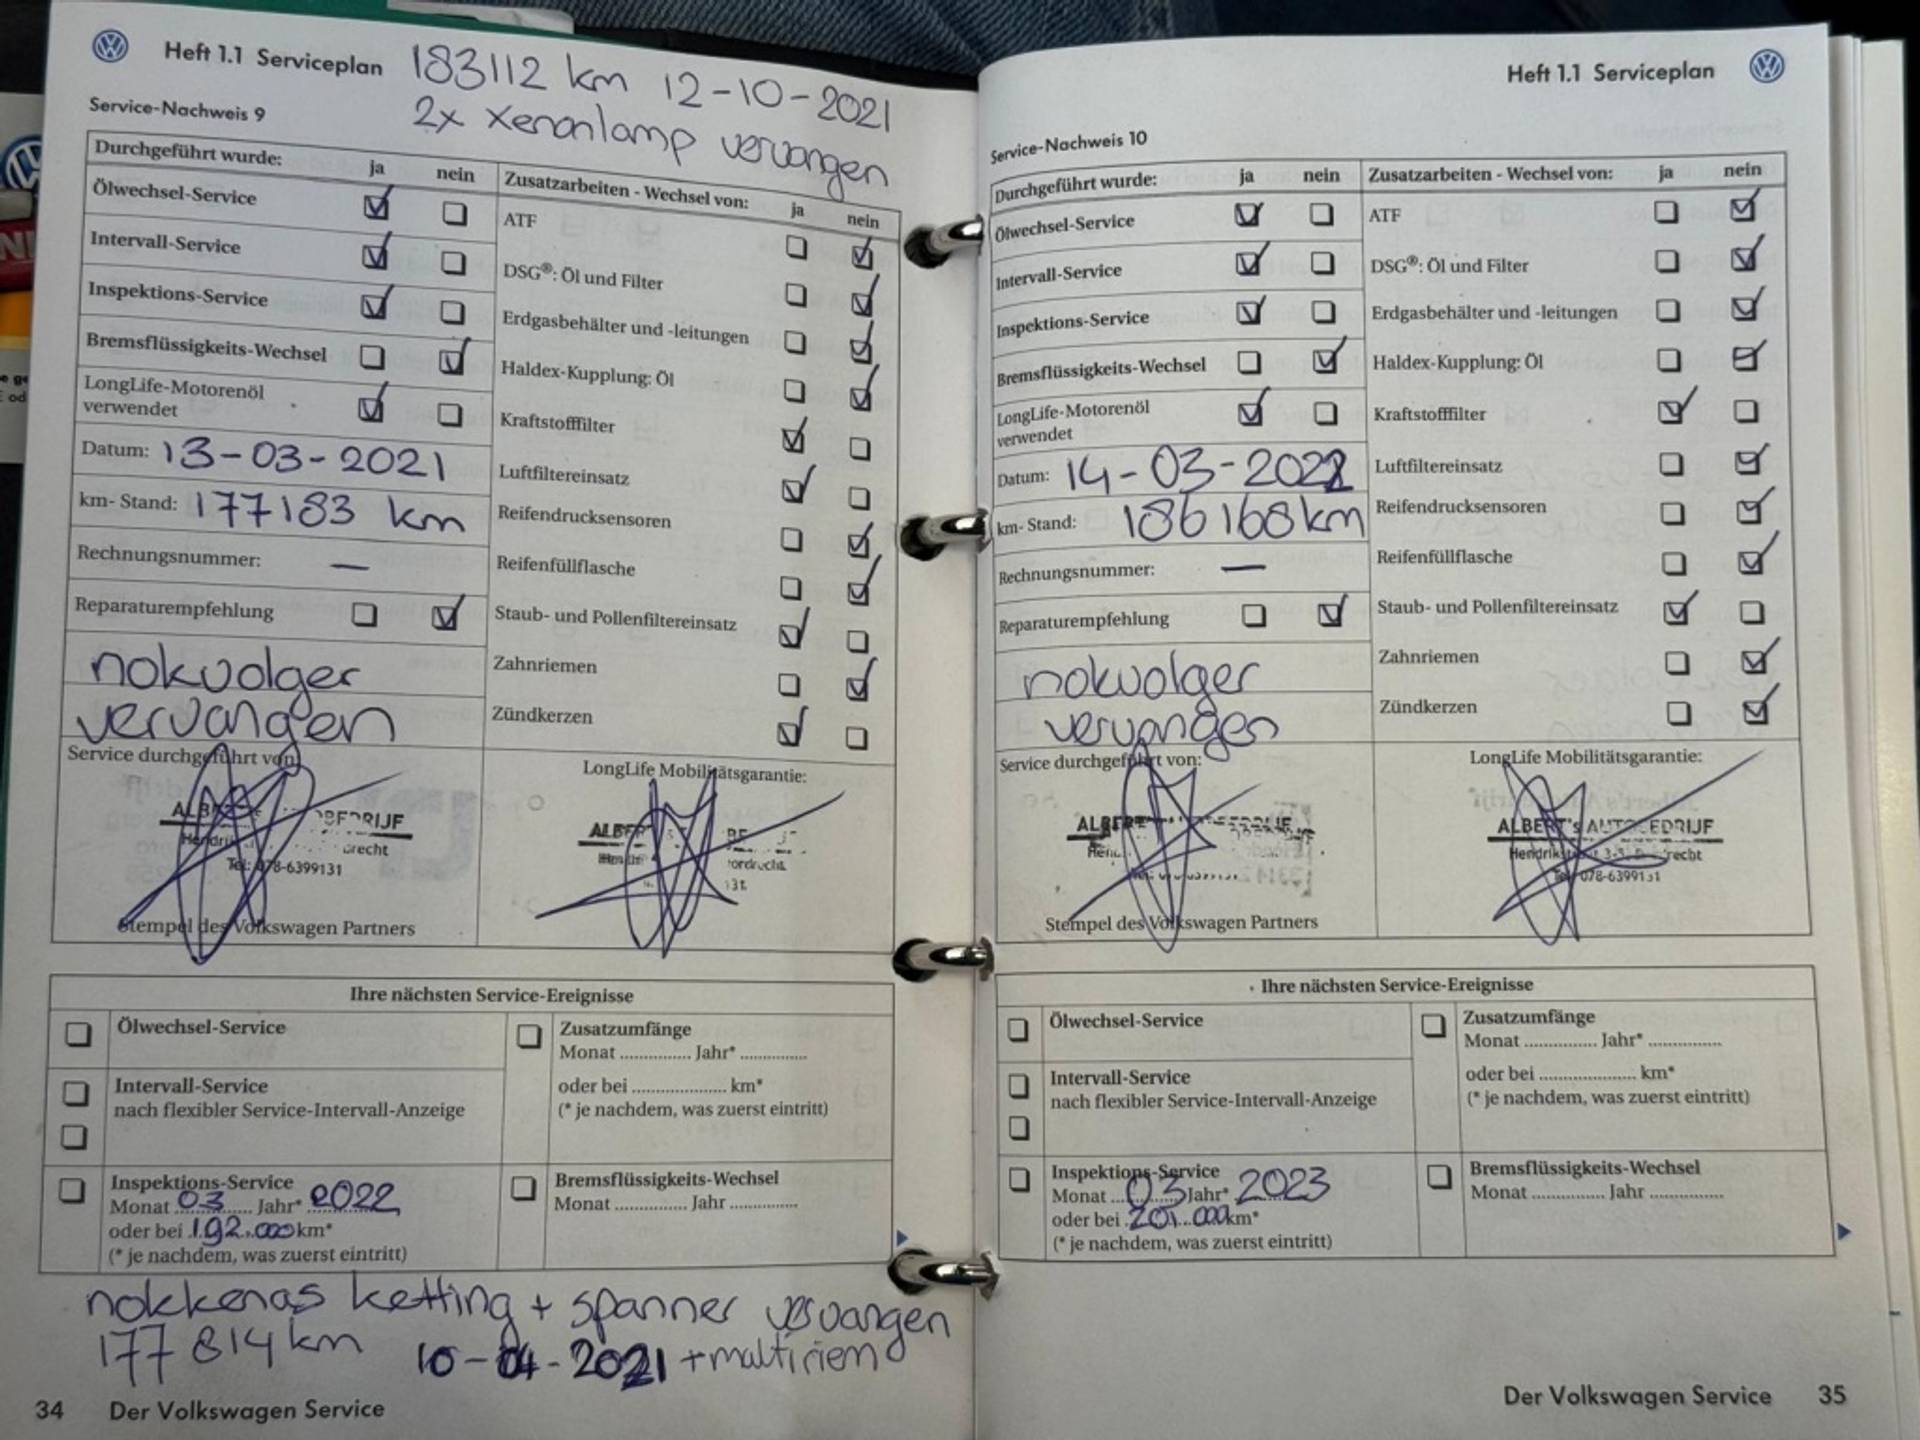 Heft 1.1 Serviceplan
183112 km 12-10-2021
2x Xenonlamp vervangen
Service-Nachweis 9
Durchgeführt wurde: ja nein
Ölwechsel-Service
Intervall-Service
Inspektions-Service
Bremsflüssigkeits-Wechsel
LongLife-Motorenöl
verwendet
Datum: 13-03-2021
km- Stand: 177183 km
Rechnungsnummer: —
Reparaturempfehlung
nokvolger
vervangen
Zusatzarbeiten - Wechsel von: ja nein
ATF
DSG®: Öl und Filter
Erdgasbehälter und -leitungen
Haldex-Kupplung: Öl
Kraftstofffilter
Luftfiltereinsatz
Reifendrucksensoren
Reifenfüllflasche
Staub- und Pollenfiltereinsatz
Zahnriemen
Zündkerzen
Service durchgeführt von:
Tel: 078-6399131
Stempel des Volkswagen Partners
LongLife Mobilitätsgarantie:
Ihre nächsten Service-Ereignisse
Ölwechsel-Service
Intervall-Service
nach flexibler Service-Intervall-Anzeige
Inspektions-Service
Monat 03 Jahr* 2022
oder bei 192.000 km*
(* je nachdem, was zuerst eintritt)
Zusatzumfänge
Monat ............... Jahr* ..............
oder bei ..................... km*
(* je nachdem, was zuerst eintritt)
Bremsflüssigkeits-Wechsel
Monat ............... Jahr ...............
nokkenas ketting + spanner vervangen
177 814 km 10-04-2021 + multiriem
34 Der Volkswagen Service
Heft 1.1 Serviceplan
Service-Nachweis 10
Durchgeführt wurde: ja nein
Ölwechsel-Service
Intervall-Service
Inspektions-Service
Bremsflüssigkeits-Wechsel
LongLife-Motorenöl
verwendet
Datum: 14-03-2022
km- Stand: 186168 km
Rechnungsnummer: —
Reparaturempfehlung
nokvolger
vervangen
Zusatzarbeiten - Wechsel von: ja nein
ATF
DSG®: Öl und Filter
Erdgasbehälter und -leitungen
Haldex-Kupplung: Öl
Kraftstofffilter
Luftfiltereinsatz
Reifendrucksensoren
Reifenfüllflasche
Staub- und Pollenfiltereinsatz
Zahnriemen
Zündkerzen
Service durchgeführt von:
Stempel des Volkswagen Partners
LongLife Mobilitätsgarantie:
ALBERT's AUTOBEDRIJF
Tel: 078-6399131
Ihre nächsten Service-Ereignisse
Ölwechsel-Service
Intervall-Service
nach flexibler Service-Intervall-Anzeige
Inspektions-Service
Monat 03 Jahr* 2023
oder bei 201.000 km*
(* je nachdem, was zuerst eintritt)
Zusatzumfänge
Monat ............... Jahr* ...............
oder bei ..................... km*
(* je nachdem, was zuerst eintritt)
Bremsflüssigkeits-Wechsel
Monat ............... Jahr ...............
Der Volkswagen Service 35